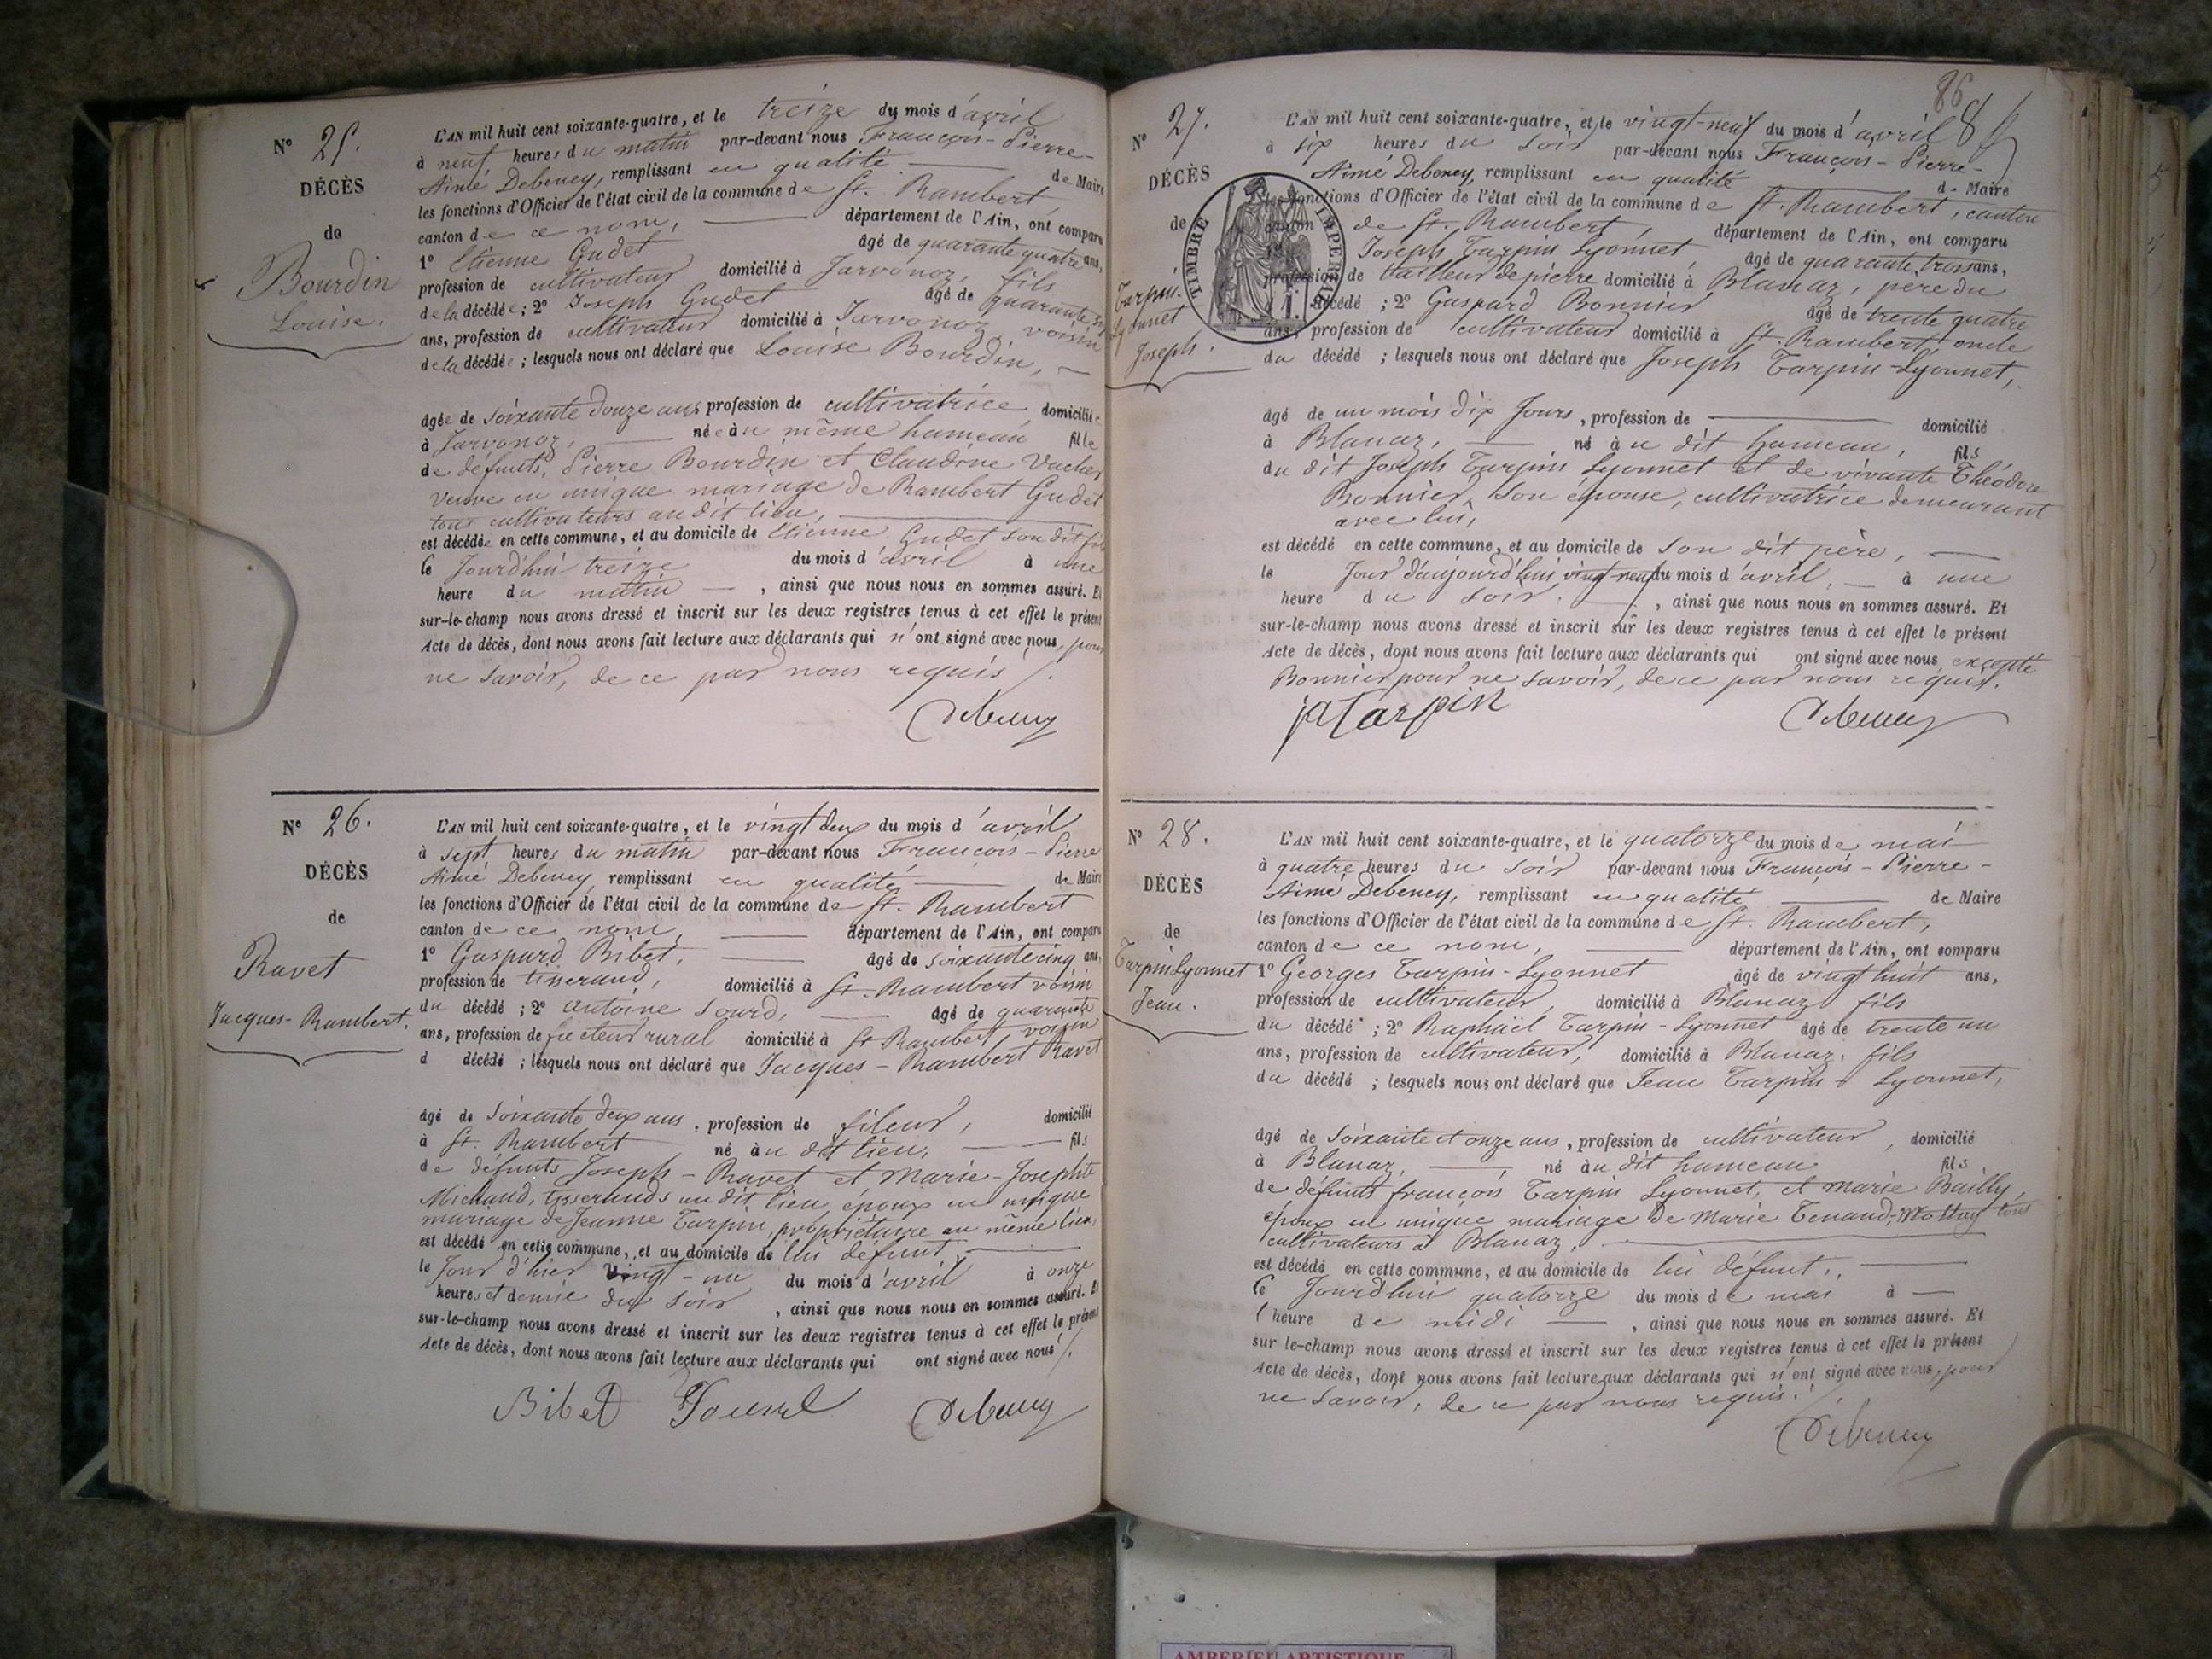 N° 25.
DÉCÈS
de
Bourdin
Louise.
L'AN mil huit cent soixante-quatre, et le treize du mois d'avril
à neuf heures du matin par-devant nous François-Pierre-
Aimé Debeney, remplissant en qualité de Maire
les fonctions d'Officier de l'état civil de la commune de St. Rambert,
canton de ce nom, département de l'Ain, ont comparu
1° Etienne Gudet âgé de quarante quatre ans,
profession de cultivateur domicilié à Jarvonoz, fils
de la décédée ; 2° Joseph Gudet âgé de quarante
ans, profession de cultivateur domicilié à Jarvonoz voisin
de la décédée ; lesquels nous ont déclaré que Louise Bourdin,
âgée de soixante douze ans profession de cultivatrice domiciliée
à Jarvonoz, née au même hameau fille
de défunts, Pierre Bourdin et Claudine Vacher
veuve en unique mariage de Rambert Gudet
tous cultivateurs au dit lieu,
est décédée en cette commune, et au domicile de Etienne Gudet son dit fils
le Jourd'hui treize du mois d'avril à une
heure du matin , ainsi que nous nous en sommes assuré. Et
sur-le-champ nous avons dressé et inscrit sur les deux registres tenus à cet effet le présent
Acte de décès, dont nous avons fait lecture aux déclarants qui n'ont signé avec nous, pour
ne savoir, de ce par nous requis.
Debeney
N° 26.
DÉCÈS
de
Ravet
Jacques-Rambert.
L'AN mil huit cent soixante-quatre, et le vingt deux du mois d'avril
à sept heures du matin par-devant nous François-Pierre
Aimé Debeney remplissant en qualité de Maire
les fonctions d'Officier de l'état civil de la commune de St. Rambert
canton de ce nom, département de l'Ain, ont comparu
1° Gaspard Bibet, âgé de soixante cinq ans,
profession de tisserand, domicilié à St. Rambert voisin
du décédé ; 2° Antoine Sourd, âgé de quarante
ans, profession de facteur rural domicilié à St Rambert voisin
d décédé ; lesquels nous ont déclaré que Jacques-Rambert Ravet
âgé de soixante deux ans, profession de fileur, domicilié
à St. Rambert né au dit lieu, fils
de défunts Joseph-Ravet et Marie-Josephte
Michaud, tisserands au dit lieu époux en unique
mariage de Jeanne Tarpin, propriétaire au même lieu,
est décédé en cette commune, et au domicile de lui défunt,
le Jour d'hier vingt-un du mois d'avril à onze
heures et demie du soir , ainsi que nous nous en sommes assuré. Et
sur-le-champ nous avons dressé et inscrit sur les deux registres tenus à cet effet le présent
Acte de décès, dont nous avons fait lecture aux déclarants qui ont signé avec nous.
Bibet Debeney
86
N° 27.
DÉCÈS
de
Tarpin-
Lyonnet
Joseph.
TIMBRE IMPERIAL
L'AN mil huit cent soixante-quatre, et le vingt-neuf du mois d'avril
à six heures du soir par-devant nous François-Pierre-
Aimé Debeney, remplissant en qualité de Maire
les fonctions d'Officier de l'état civil de la commune de St. Rambert, canton
de St. Rambert, département de l'Ain, ont comparu
Joseph Tarpin Lyonnet, âgé de quarante trois ans,
profession de tailleur de pierre domicilié à Blanaz, père du
décédé ; 2° Gaspard Bonnier âgé de trente quatre
ans, profession de cultivateur domicilié à St. Rambert oncle
du décédé ; lesquels nous ont déclaré que Joseph Tarpin-Lyonnet,
âgé de un mois dix Jours, profession de domicilié
à Blanaz, né au dit hameau, fils
du dit Joseph Tarpin Lyonnet et de vivante Théodore
Bonnier, son épouse, cultivatrice demeurant
avec lui,
est décédé en cette commune, et au domicile de son dit père,
le Jour d'aujourd'hui vingt-neuf du mois d'avril, à une
heure du soir. , ainsi que nous nous en sommes assuré. Et
sur-le-champ nous avons dressé et inscrit sur les deux registres tenus à cet effet le présent
Acte de décès, dont nous avons fait lecture aux déclarants qui ont signé avec nous excepté
Bonnier pour ne savoir, de ce par nous requis.
Tarpin Debeney
N° 28.
DÉCÈS
de
Tarpin Lyonnet
Jean.
L'AN mil huit cent soixante-quatre, et le quatorze du mois de mai
à quatre heures du soir par-devant nous François-Pierre-
Aimé Debeney, remplissant en qualité de Maire
les fonctions d'Officier de l'état civil de la commune de St. Rambert,
canton de ce nom, département de l'Ain, ont comparu
1° Georges Tarpin-Lyonnet âgé de vingt huit ans,
profession de cultivateur, domicilié à Blanaz fils
du décédé ; 2° Raphaël Tarpin-Lyonnet âgé de trente un
ans, profession de cultivateur, domicilié à Blanaz, fils
du décédé ; lesquels nous ont déclaré que Jean Tarpin-Lyonnet,
âgé de soixante et onze ans, profession de cultivateur, domicilié
à Blanaz, né au dit hameau fils
de défunts françois Tarpin Lyonnet, et marie Bailly,
époux en unique mariage de Marie Tenand- tous
cultivateurs à Blanaz,
est décédé en cette commune, et au domicile de lui défunt,
le Jourd'hui quatorze du mois de mai à
l'heure de midi , ainsi que nous nous en sommes assuré. Et
sur le-champ nous avons dressé et inscrit sur les deux registres tenus à cet effet le présent
Acte de décès, dont nous avons fait lecture aux déclarants qui n'ont signé avec nous, pour
ne savoir, de ce par nous requis.
Debeney
AMBERIEU ARTISTIQUE